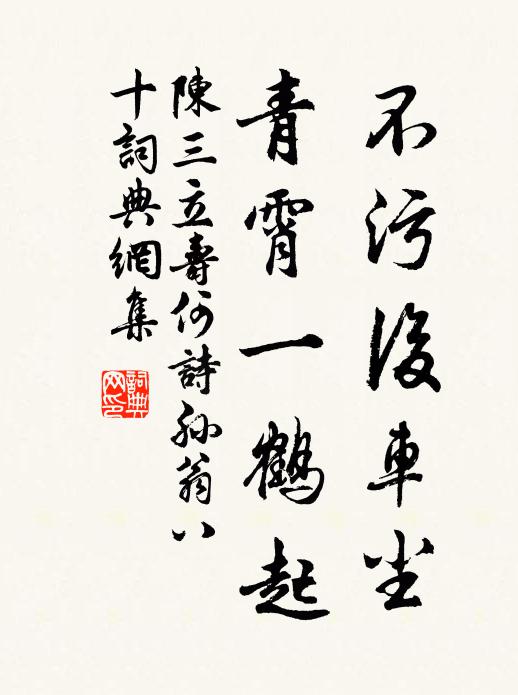 不污後車坐
青霄一鶴起
陳三立壽何詩孫翁八
十詞典網集
詞典
网印